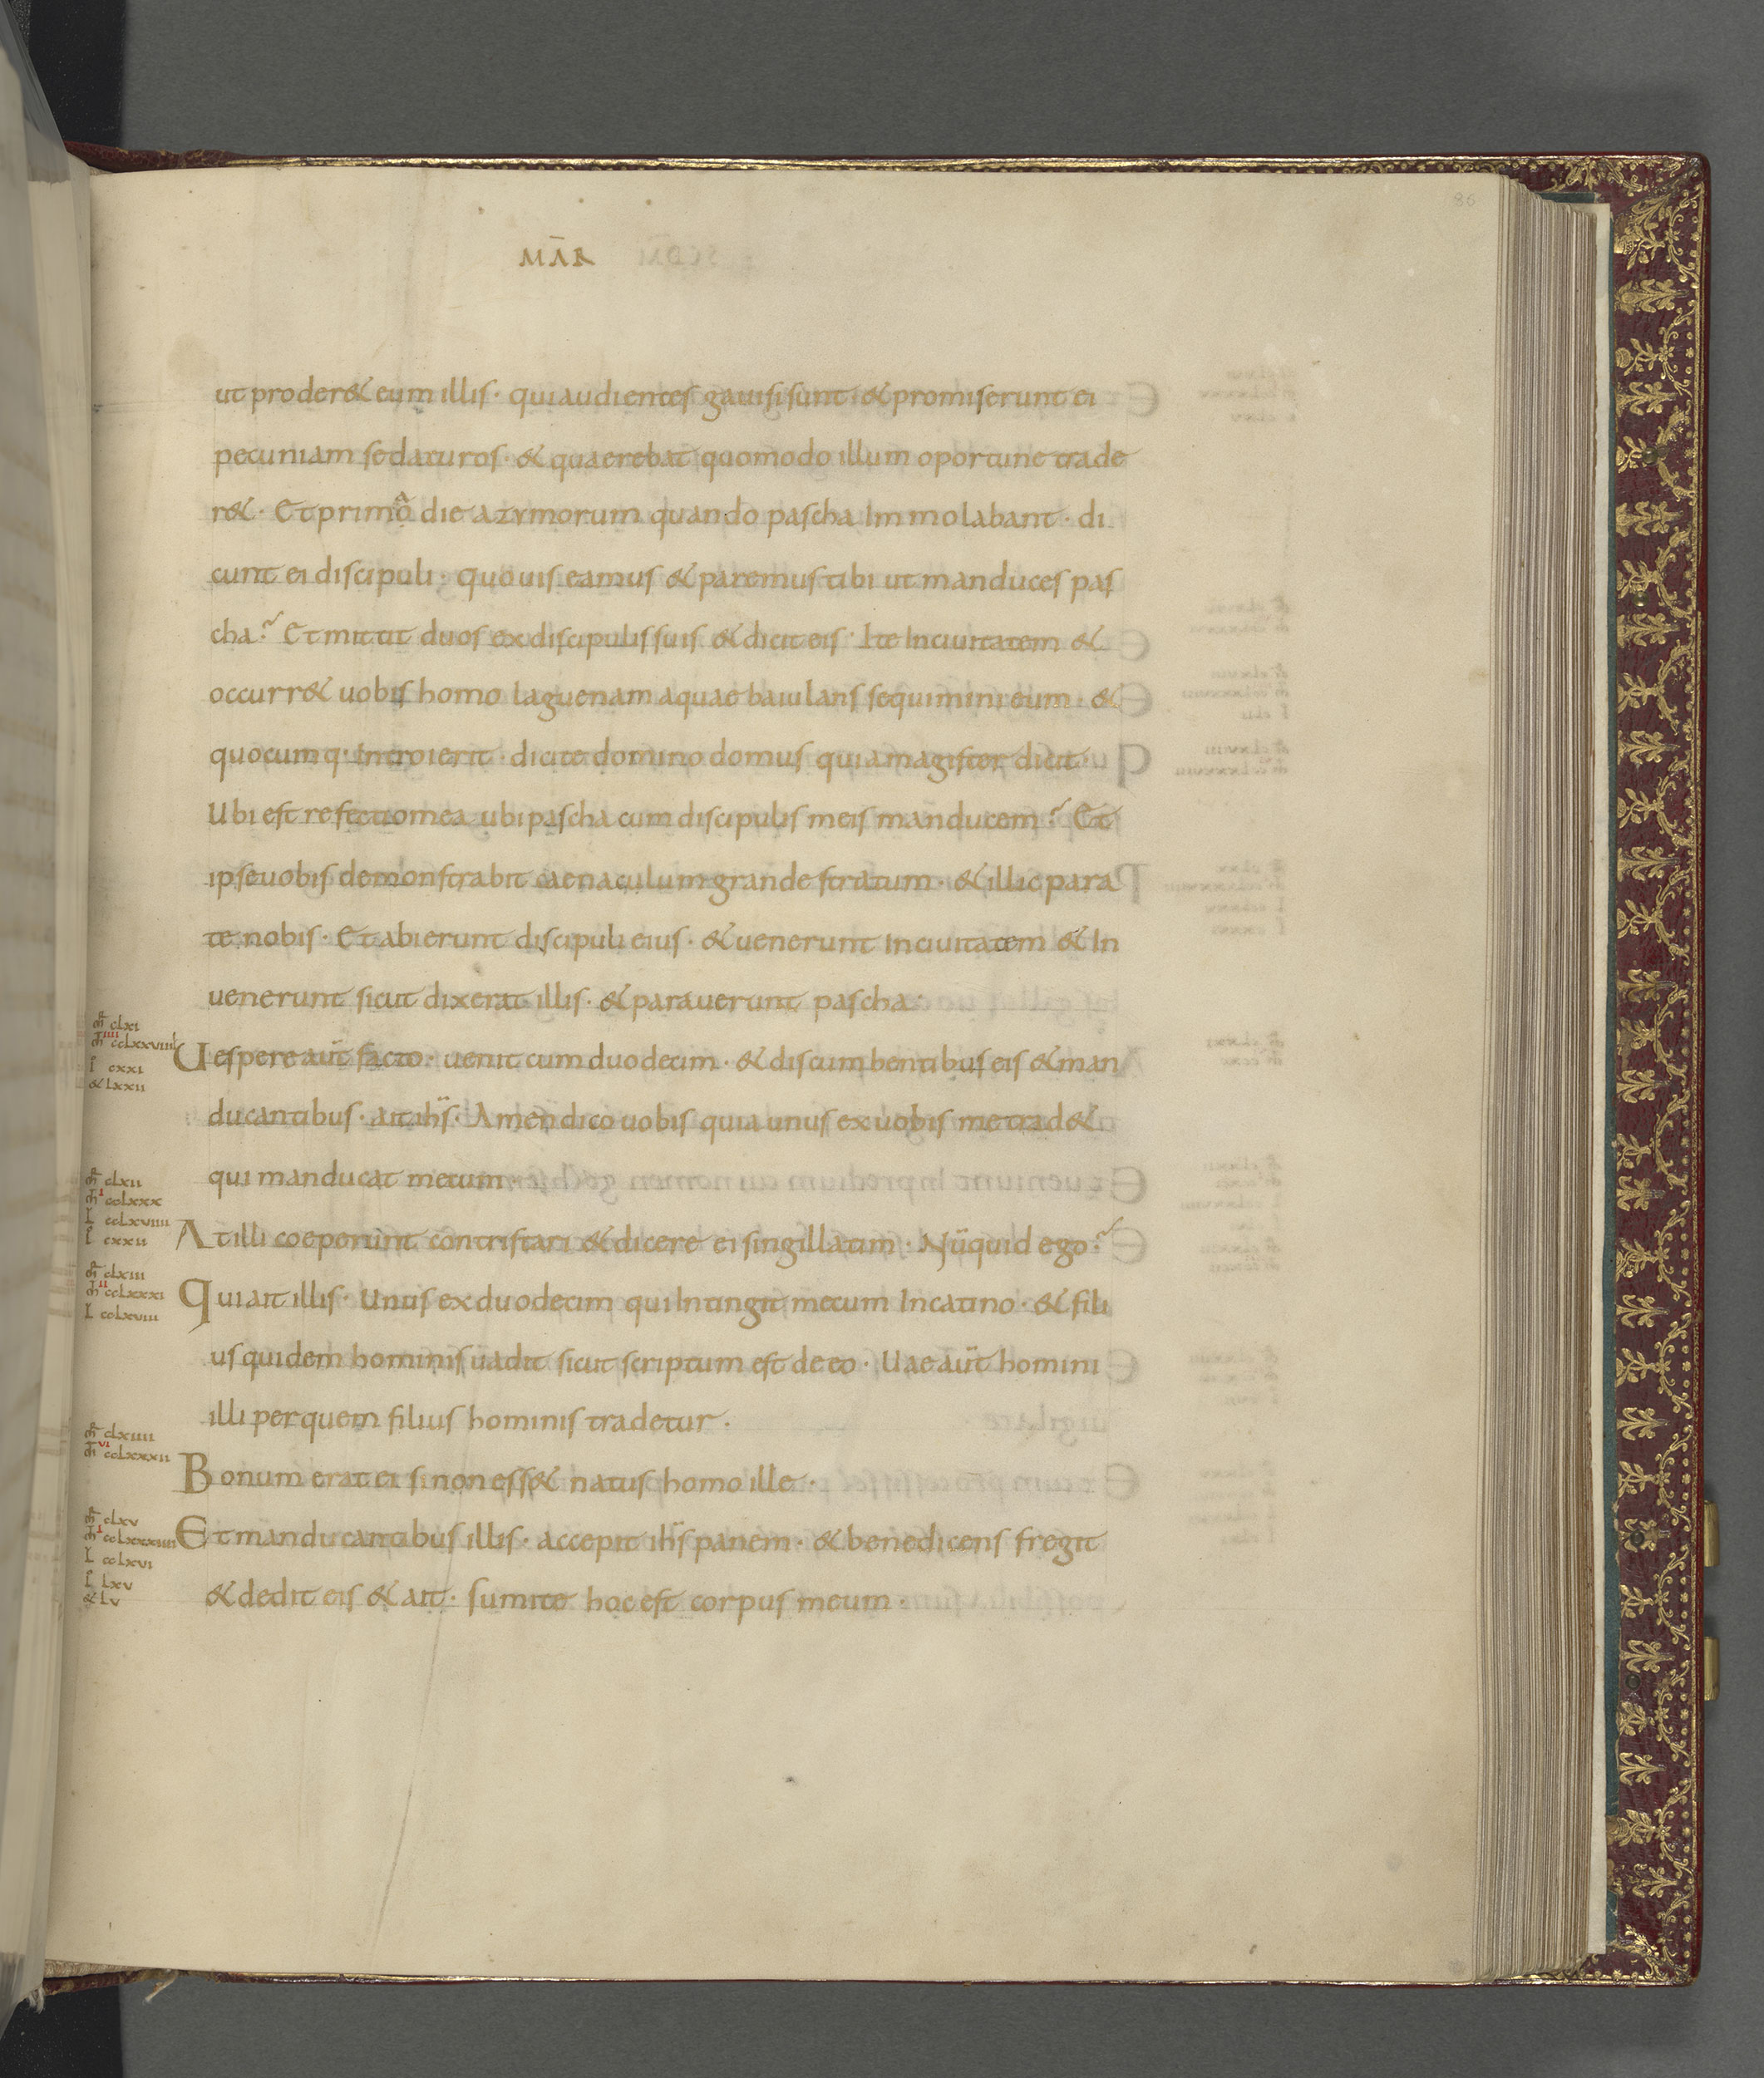 86
MĀR
ut proder& eum illis · qui audientes gauisi sunt · & promiserunt ei
pecuniam se daturos · & quaerebat quomodo illum oportune trade
r& · Et primo die azymorum quando pascha Immolabant · di
cunt ei discipuli · quo uis eamus & paremus tibi ut manduces pas
cha? Et mittit duos ex discipulis suis & dicit eis · Ite In ciuitatem &
occurr& uobis homo laguenam aquae baiulans sequimini eum · &
quocumq· Introierit · dicite domino domus quia magister dicit ·
Ubi est refectio mea ubi pascha cum discipulis meis manducem? Et
ipse uobis demonstrabit caenaculum grande stratum · & illic para
te nobis · Et abierunt discipuli eius · & uenerunt In ciuitatem & In
uenerunt sicut dixerat illis · & parauerunt pascha ·
m̄ clxi
m̄ iiii cclxxviiii
i cxxi
& lxxii
Uespere aūt facto · uenit cum duodecim · & discumbentibus eis & man
ducantibus · ait ih̄s · Amen dico uobis quia unus ex uobis me trad&
qui manducat mecum ·
m̄ clxii
m̄ i cclxxx
L cclxviiii
i cxxii
At illi coeperunt contristari & dicere ei singillatim · Nūquid ego?
m̄ clxiii
m̄ ii cclxxxi
L cclxviii
Qui ait illis · Unus ex duodecim qui Intingit mecum In catino · & fili
us quidem hominis uadit sicut scriptum est de eo · Uae aūt homini
illi per quem filius hominis tradetur ·
m̄ clxiiii
m̄ vi cclxxxii
Bonum erat ei si non ess& natus homo ille ·
m̄ clxv
m̄ i cclxxxiiii
L cclxvi
i lxv
& lv
Et manducantibus illis · accepit ih̄s panem · & benedicens fregit
& dedit eis & ait · sumite hoc est corpus meum ·